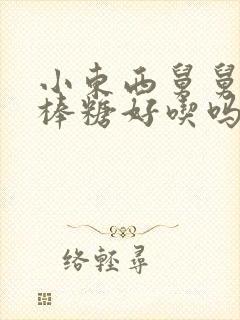 小东西舅舅
棒糖好喫吗
络轻寻